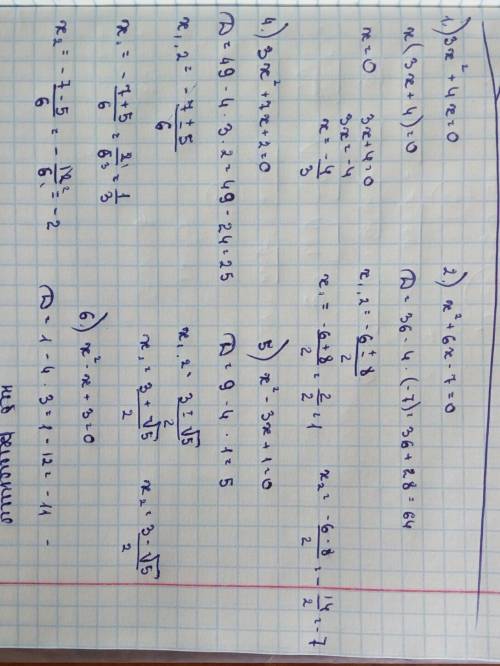 1.) 3x² + 4x = 0
x(3x+4)=0
x=0 3x+4=0
3x=-4
x = -4/3
2.) x² + 6x - 7 = 0
D = 36 - 4·(-7) = 36 + 28 = 64
x₁,₂ = -6 ± 8 / 2
x₁ = -6+8 / 2 = 2/2 = 1 x₂ = -6-8 / 2 = -14/2 = -7
4.) 3x² + 7x + 2 = 0
D = 49 - 4·3·2 = 49 - 24 = 25
x₁,₂ = -7 ± 5 / 6
x₁ = -7+5 / 6 = 2¹/6³ = 1/3
x₂ = -7-5 / 6 = -12²/6₁ = -2
5) x² - 3x + 1 = 0
D = 9 - 4·1 = 5
x₁,₂ = 3 ± √5 / 2
x₁ = 3 + √5 / 2 x₂ = 3 - √5 / 2
6.) x² - x + 3 = 0
D = 1 - 4·3 = 1 - 12 = -11 -